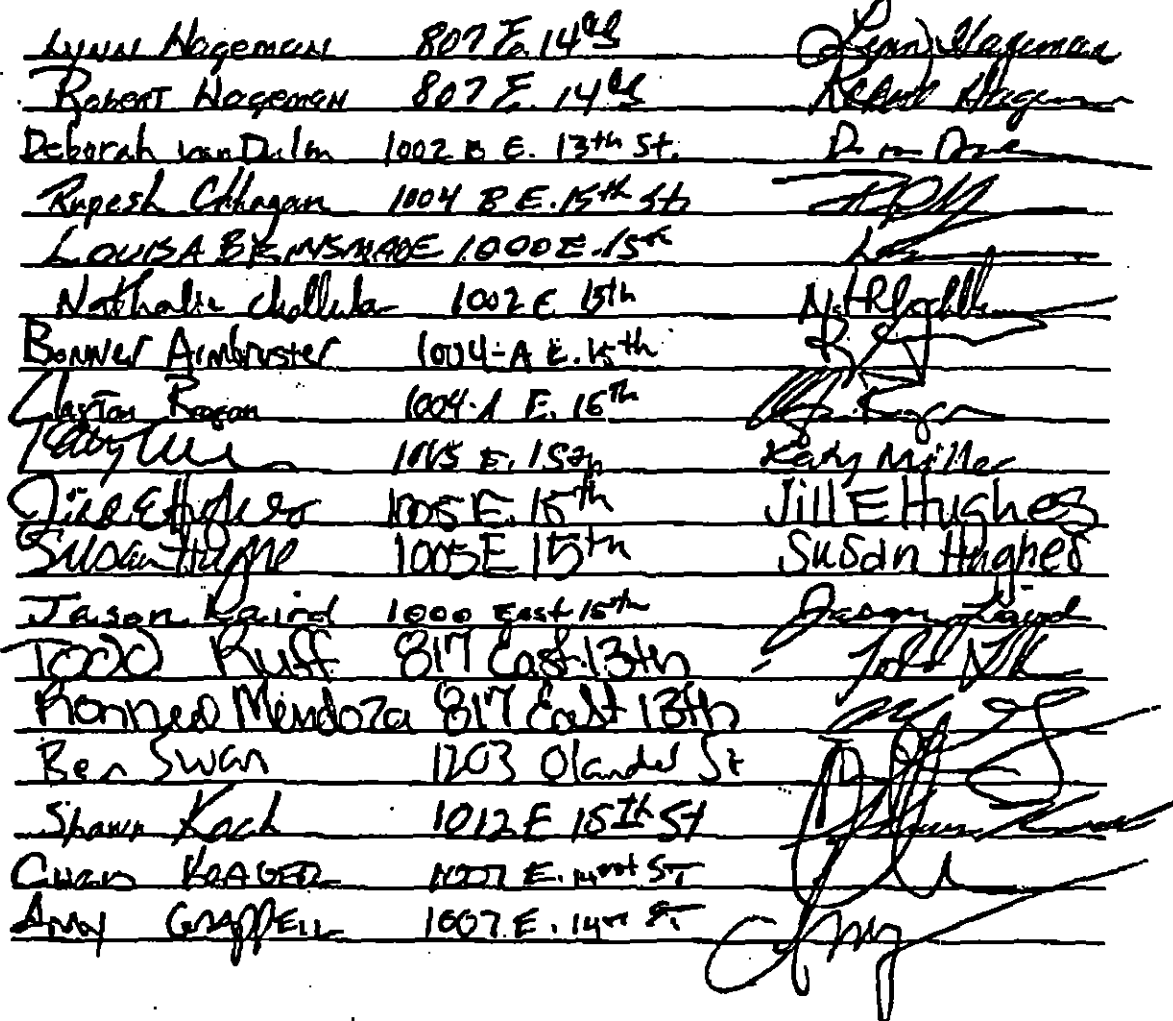 Lynn Hageman 807 E. 14th Lynn Hageman
Robert Hageman 807 E. 14th Robert Hageman
Deborah van Dulm 1002 B E. 13th St.
Rupesh Chhagan 1004 B E. 15th St
LOUISA BRINSMADE 1000 E. 15th
Nathalie 1002 E 15th
Bonner Armbruster 1004-A E. 15th
Clayton Ragan 1004-A E. 15th
E. 15th Katy Miller
Jill E Hughes 1005 E. 15th Jill E Hughes
Susan Hughes 1005 E 15th Susan Hughes
Jason Laird 1000 East 15th Jason Laird
TODD Ruff 817 East 13th
Mendoza 817 East 13th
Ben Swan 1203 Olander St
Shawn Koch 1012 E 15th St
E. 14th ST
Amy Grappell 1007 E. 14th ST Amy